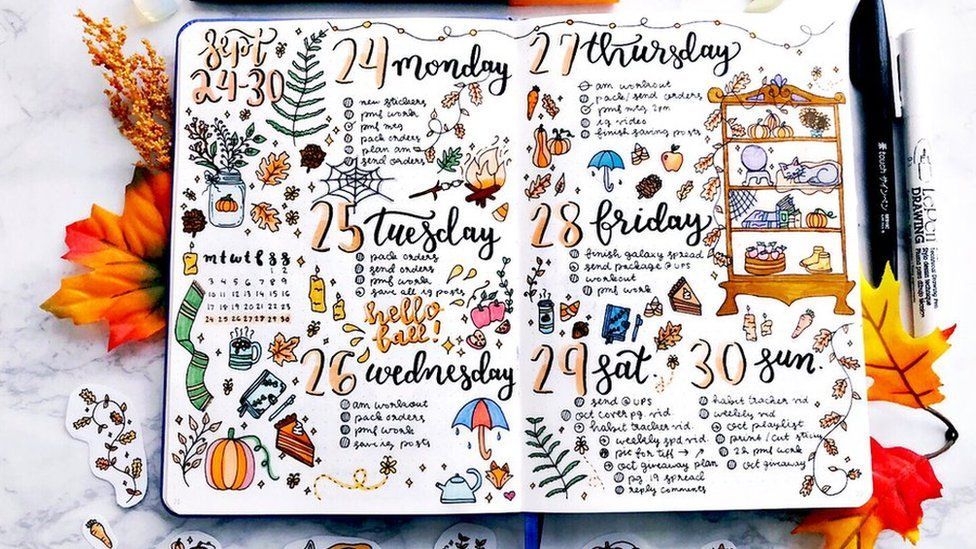 Sept
24-30
24 monday
new stickers
pmf work
pmf mtg
pack orders
plan am
send orders
25 tuesday
pack orders
send orders
pmf work
save all ig posts
m t w t f s s
1 2
3 4 5 6 7 8 9
10 11 12 13 14 15 16
17 18 19 20 21 22 23
24 25 26 27 28 29 30
hello
fall!
26 wednesday
am workout
pack orders
pmf work
save ig posts
27 thursday
am workout
pack/send orders
pmf mtg 2pm
ig video
finish saving posts
28 friday
finish galaxy spread
send package @ UPS
workout
pmf work
29 sat.
send @ UPS
oct cover pg. vid.
habit tracker vid.
weekly spd vid.
pic for tiff → ↗
oct giveaway plan
pg 19 spread
reply comments
30 sun.
habit tracker vid
weekly vid
oct playlist
print/cut sticky
2h pmf work
oct giveaway
touch サインペン
DRAWING